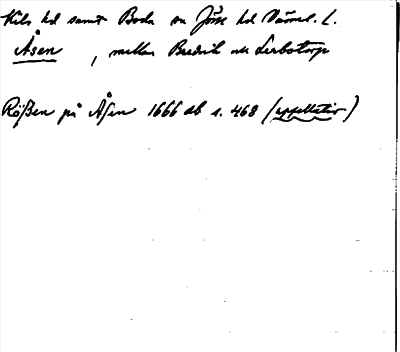 Kils hd samt Boda sn Jösse hd Värml. l.
Åsen , mellan Bredvik och Lerbotorp
Rößen på Åsen 1666 db s. 468 (appellativ)